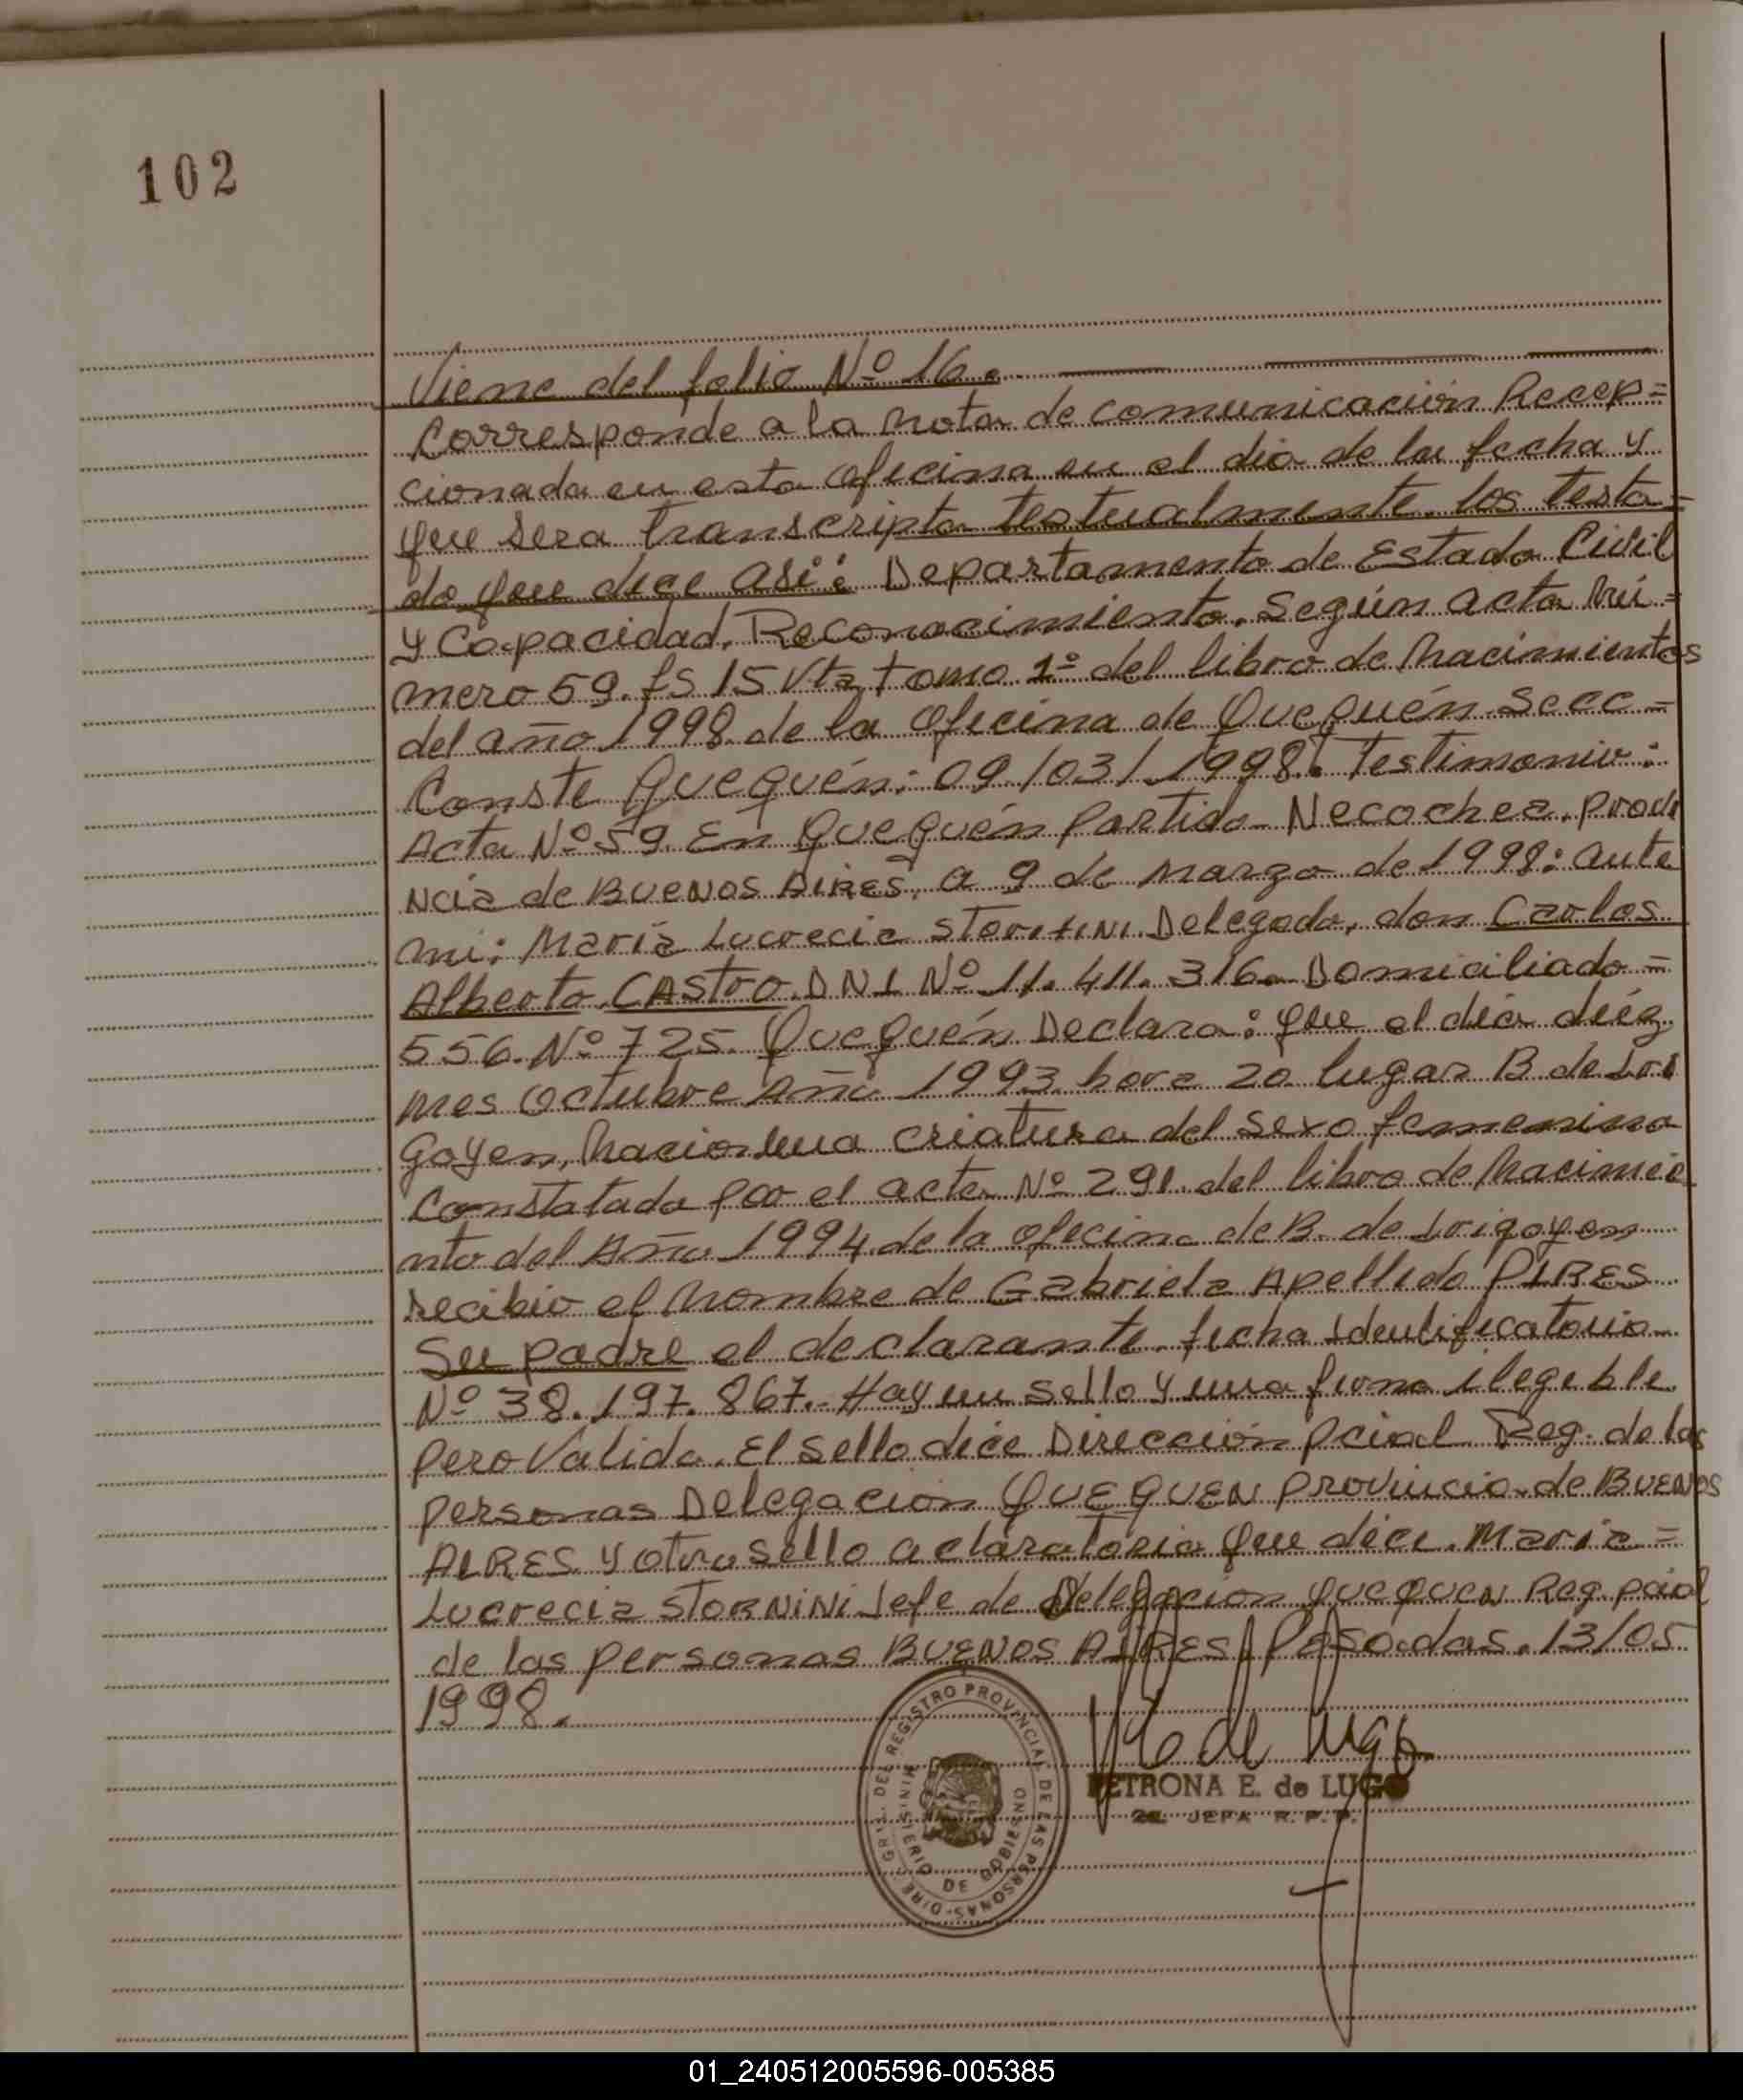 102
Viene del folio Nº 16.
Corresponde a la nota de comunicación Recep=
cionada en esta oficina en el dia de la fecha y
que sera transcripta testualmente. los testa=
do que dice asi: Departamento de Estado Civil
y Capacidad. Reconocimiento. Según acta Nú=
mero 59. fs 15 Vta tomo 1º del libro de Nacimientos
del año 1998 de la oficina de Quequén Secc=
Conste Quequén: 09/03/1998. Testimonio:
Acta Nº 59. En Quequén Partido Necochea. Provi
ncia de BUENOS AIRES, a 9 de Marzo de 1998: ante
mi: María Lucrecia STORNINI Delegada, don Carlos
Alberto CASTRO DNI Nº 11.411.316. Domiciliado =
556. Nº 725. Quequén Declara: que el día diéz
mes Octubre Año 1993 hora 20 lugar B de Iri
goyen, Nacio una criatura del sexo femenino
Constatada por el acta Nº 291 del libro de Nacimie
nto del Año 1994 de la oficina de B. de Irigoyen
recibio el nombre de Gabriela Apellido PIRES
Su padre el declarante ficha Identificatorio
Nº 38.197.867.- Hay un sello y una firma ilegible
pero Valida. El sello dice Dirección pcial Reg. de las
personas Delegacion QUEQUEN provincia de BUENOS
AIRES y otro sello aclaratoria que dice. Maria =
Lucrecia STORNINI Jefe de Delegacion Quequen Reg. pcial
de las personas BUENOS AIRES. Posadas. 13/05
1998.
DIRE. GRAL. DEL REGISTRO PROVINCIAL DE LAS PERSONAS
MINISTERIO DE GOBIERNO
de Lugo
PETRONA E. de LUGO
2a. JEFA R.P.P.
01_240512005596-005385